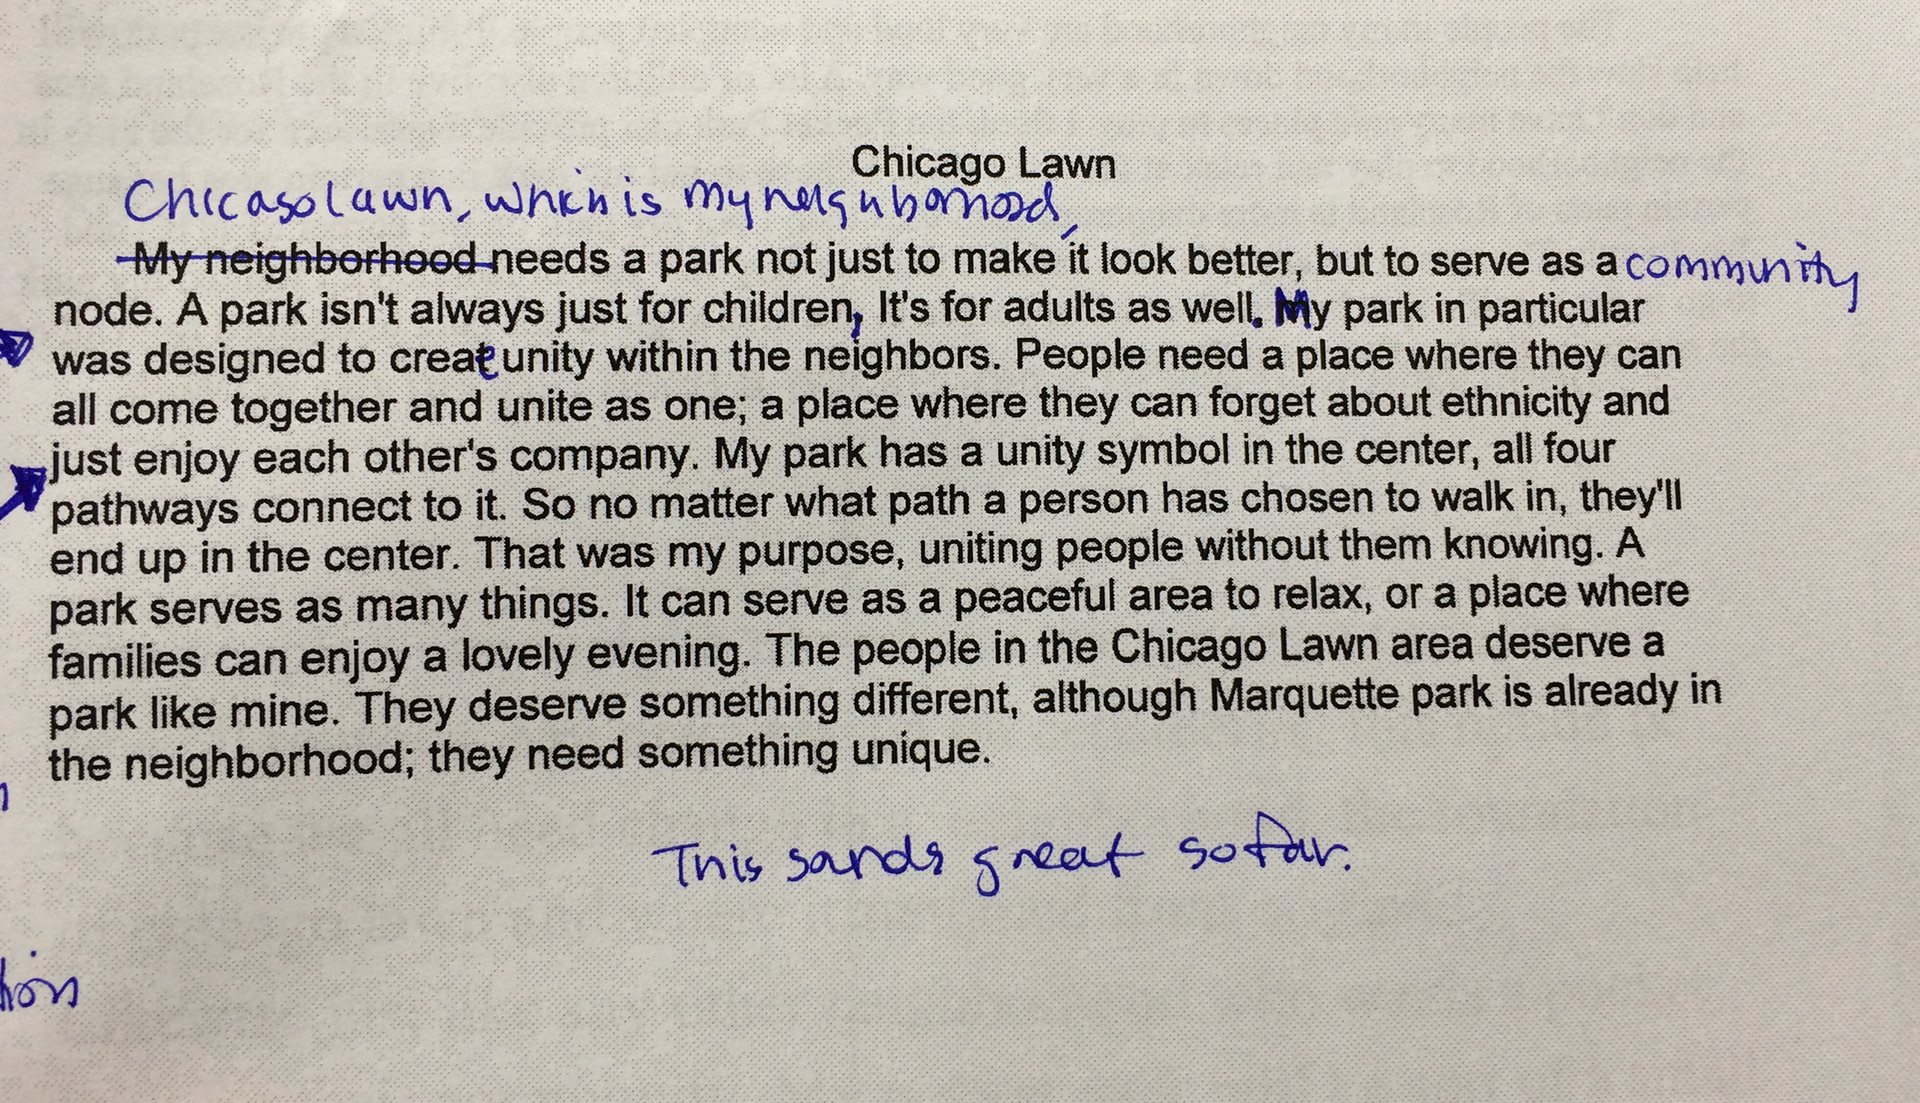 Chicago Lawn
Chicago lawn, which is my neighborhood,
My neighborhood needs a park not just to make it look better, but to serve as a community
node. A park isn't always just for children, It's for adults as well. My park in particular
was designed to create unity within the neighbors. People need a place where they can
all come together and unite as one; a place where they can forget about ethnicity and
just enjoy each other's company. My park has a unity symbol in the center, all four
pathways connect to it. So no matter what path a person has chosen to walk in, they'll
end up in the center. That was my purpose, uniting people without them knowing. A
park serves as many things. It can serve as a peaceful area to relax, or a place where
families can enjoy a lovely evening. The people in the Chicago Lawn area deserve a
park like mine. They deserve something different, although Marquette park is already in
the neighborhood; they need something unique.
This sounds great so far.